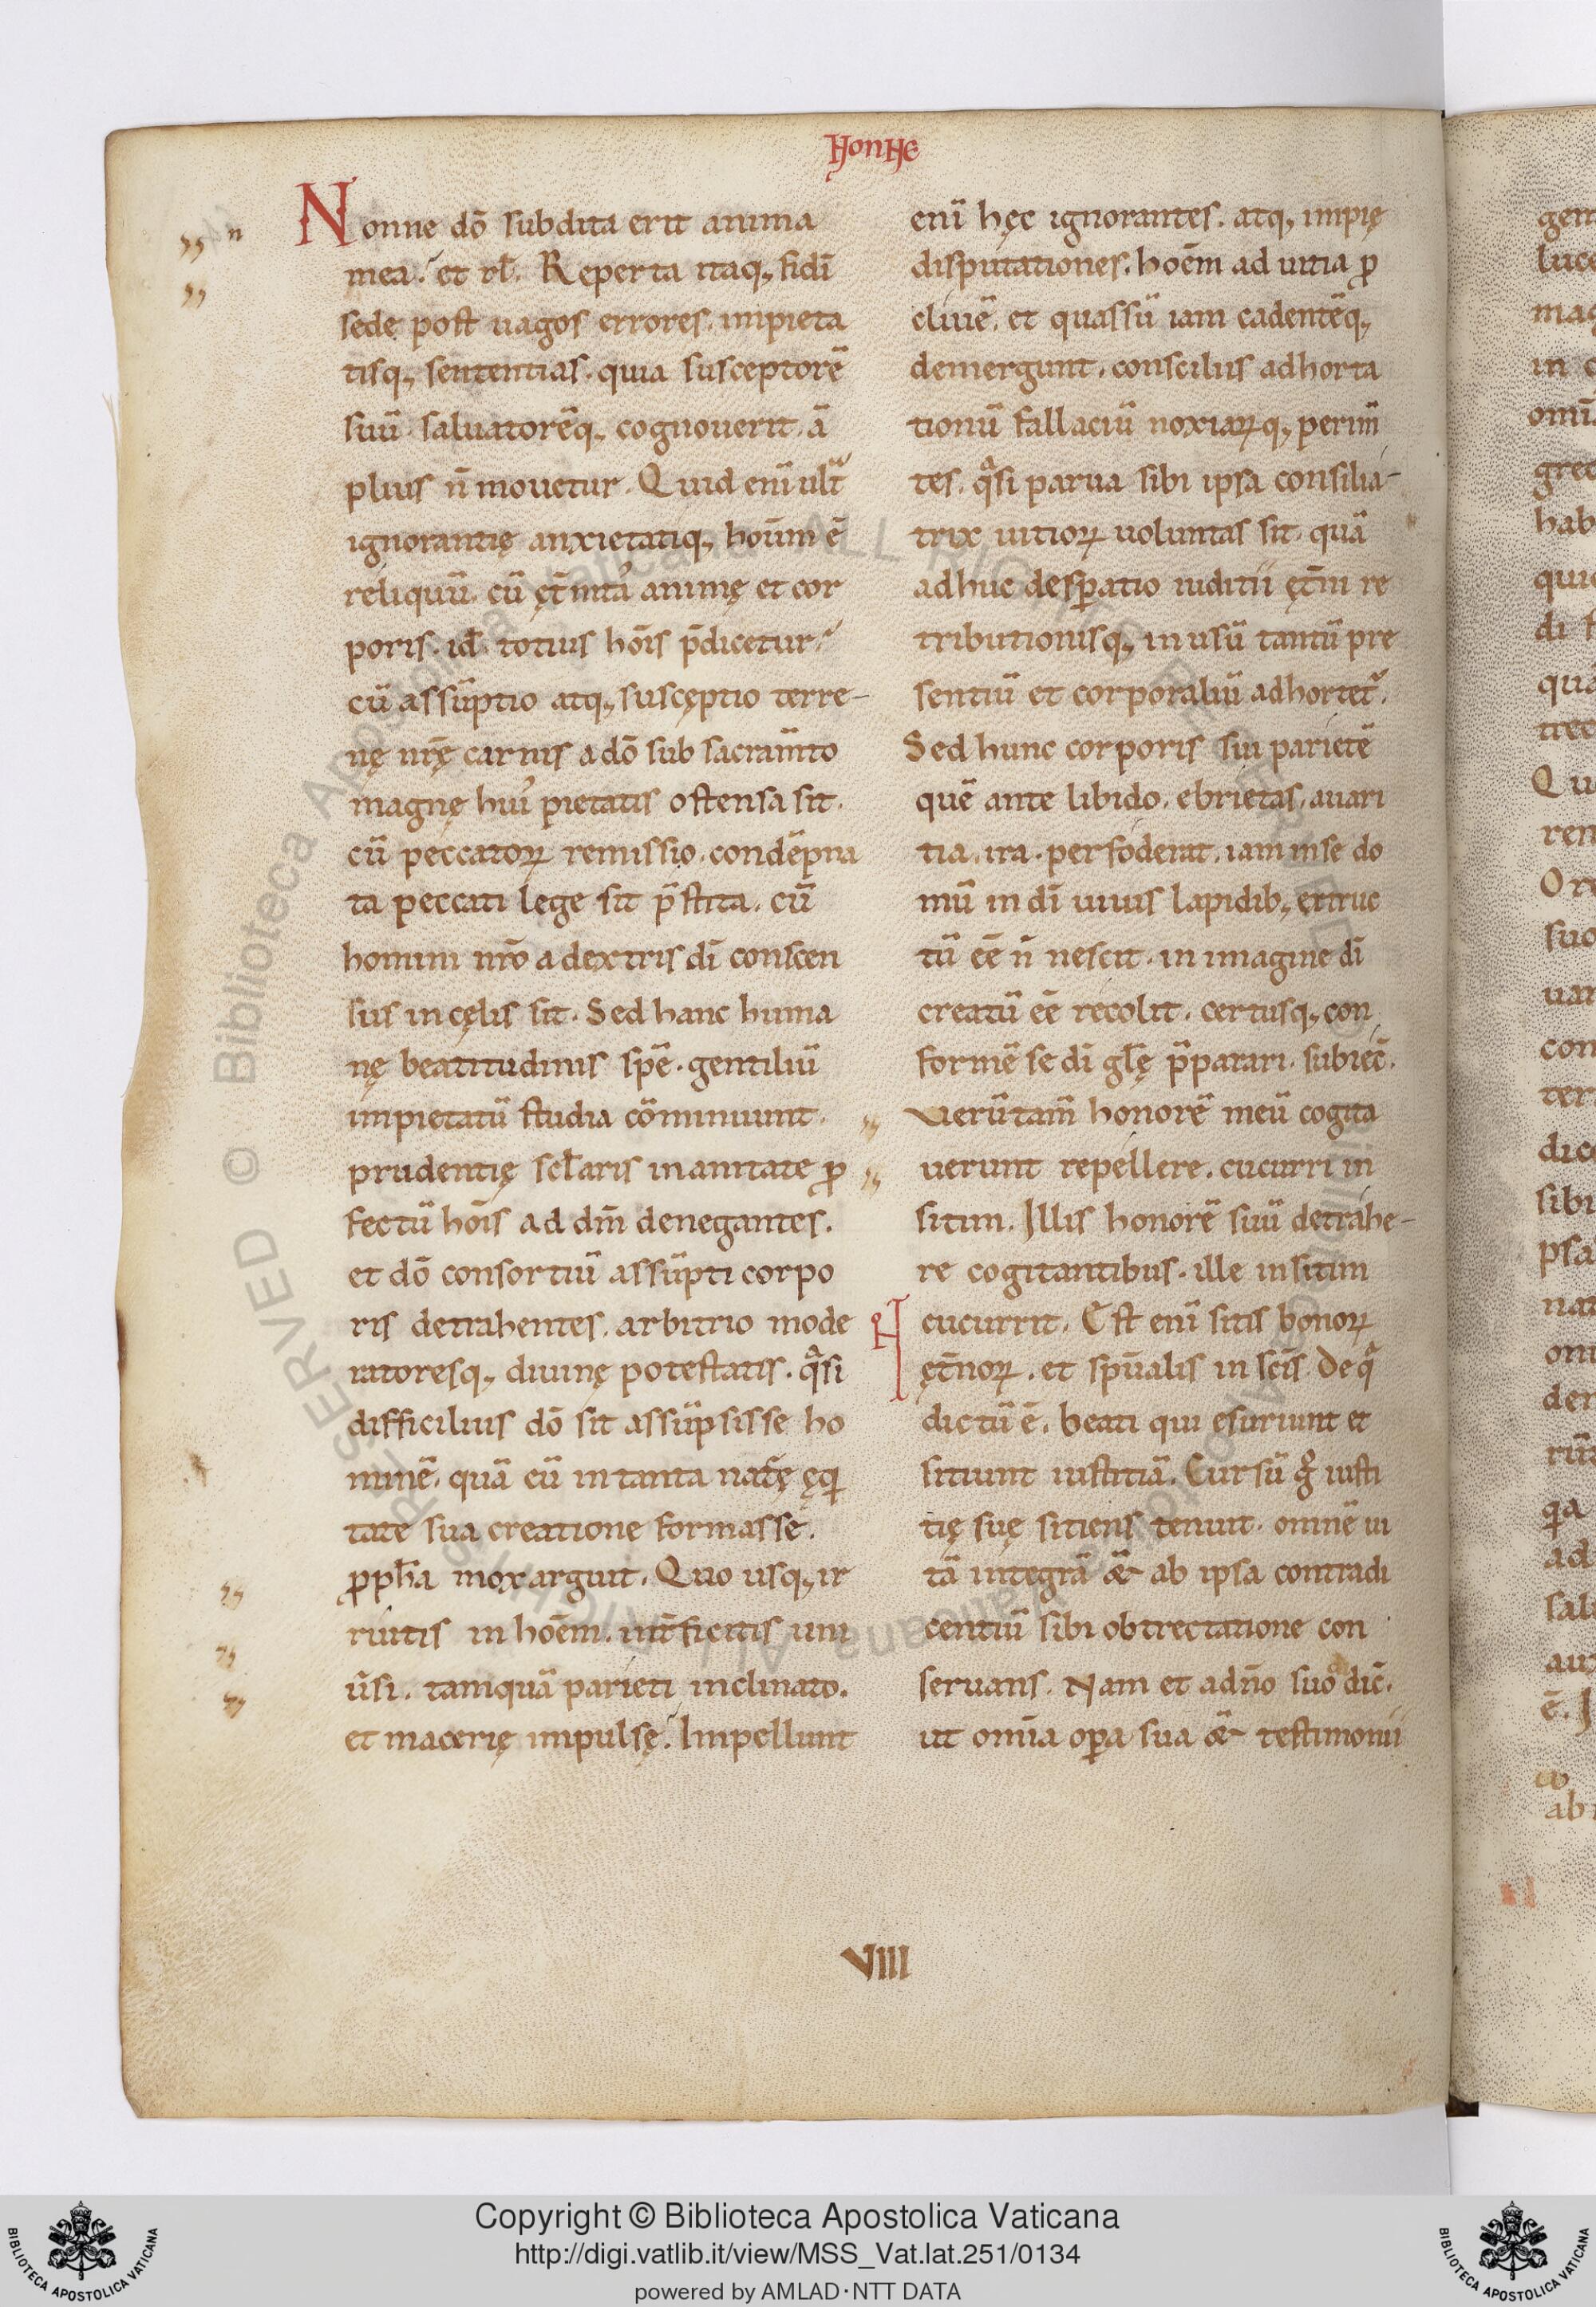 Nonne
Nonne dō subdita erit anima
mea. et rł. Reperta itaq; fidī
sede post uagos errores. impieta
tisq; sententias. quia susceptorē
suū saluatorēq; cognouerit. ā
plius n̄ mouetur. Quid enī ult̄
ignorantię anxietatiq; hoūm ē
reliquū. cū ęt̄nita᷒ animę et cor
poris. id totius hoīs p̄dicetur.
cū assūptio atq; suscęptio terre-
nę nr̄ę carnis a dō sub sacram̄to
magnę hui᷒ pietatis ostensa sit.
cū peccatoꝝ remissio. condēpna
ta peccati lege sit p̄stita. cū
homini nr̄o a dextris dī conscen
sus in cęlis sit. Sed hanc huma
nę beatitudinis spē. gentiliū
impietatū studia cōminuunt.
prudentię scłaris inanitate ꝓ
fectū hoīs ad dm̄ denegantes.
et dō consortiū assūpti corpo
ris detrahentes. arbitrio mode
ratoresq; diuinę potestatis. qͣsi
difficilius dō sit assūpsisse ho
minē. quā cū in tanta nat̄ę ęq
tate sua creatione formasse.
ꝓpħa mox arguit. Quo usq; ir
ruitis in hoēm. int̄ficitis uni
ūsi. tamquā parieti inclinato.
et macerię impulsę. Impellunt
enī hęc ignorantes. atq; impię
disputationes. hoēm ad uitia ꝓ
cliuē. et quassū iam cadentēq;
demergunt. consciliis adhorta
tionū fallaciū noxiaꝝq; perim̄
tes. qͣsi parua sibi ipsa consilia-
trix uitioꝝ uoluntas sit. quā
adhuc desꝑatio iuditii ęt̄ni re
tributionisq; in usū tantū pre
sentiū et corporaliū adhortet᷒.
Sed hunc corporis sui parietē
quē ante libido. ebrietas. auari
tia. ira. perfoderat. iam in se do
mū in dī uiuis lapidib; extruc
tū eē n̄ nescit. in imagine dī
creatū eē recolit. certusq; con
formē se dī glę p̄parari. subiec̄.
Uerūtam̄ honorē meū cogita
uerunt repellere. cucurri in
sitim. Illis honorē suū detrahe-
re cogitantibus. ille in sitim
cucurrit. Est enī sitis bonoꝝ
ęt̄noꝝ. et spūalis in scīs. De qͣ
dictū ē. beati qui esuriunt et
sitiunt iustitiā. Cursū gͦ iusti
tię suę sitiens tenuit. omnē ui
tā integrā & ab ipsa contradi
centiū sibi obtrectatione con
seruans. Nam et ad dn̄o suo dic̄.
ut om̄ia oꝑa sua & testimonii
VIII
Copyright © Biblioteca Apostolica Vaticana
http://digi.vatlib.it/view/MSS_Vat.lat.251/0134
powered by AMLAD·NTT DATA